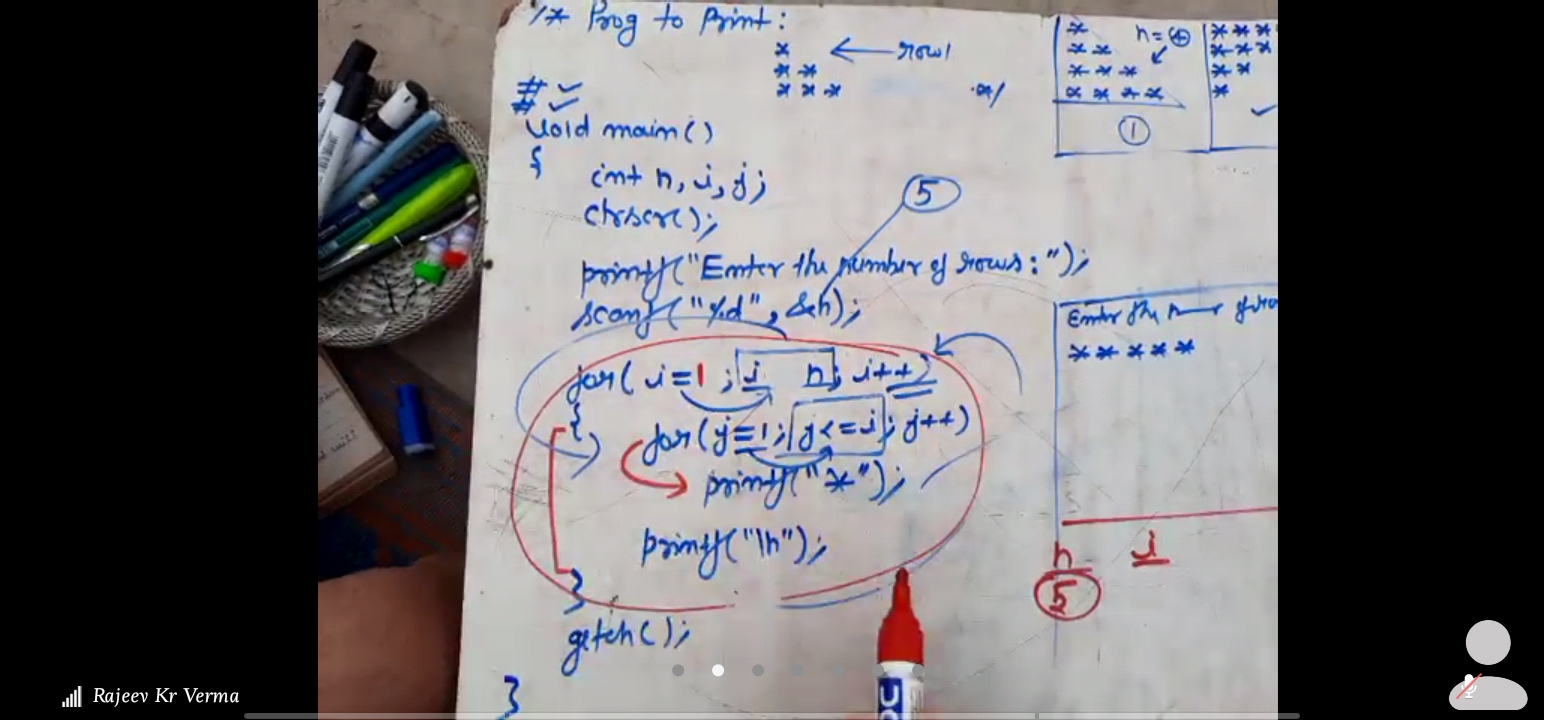 /* Prog to Print:
* ← row1
* *
* * * */
# ✓
# ✓
void main()
{
int n, i, j;
clrscr();
5
printf("Enter the number of rows:");
scanf("%d", &n);
for( i=1 ; i n; i++)
{
for(j=1; j<=i; j++)
printf("*");
printf("\n");
}
getch();
}
* n=4
* *
* * *
* * * *
1
* * *
* * *
* *
*
✓
Enter the
* * * * *
n i
5
Rajeev Kr Verma